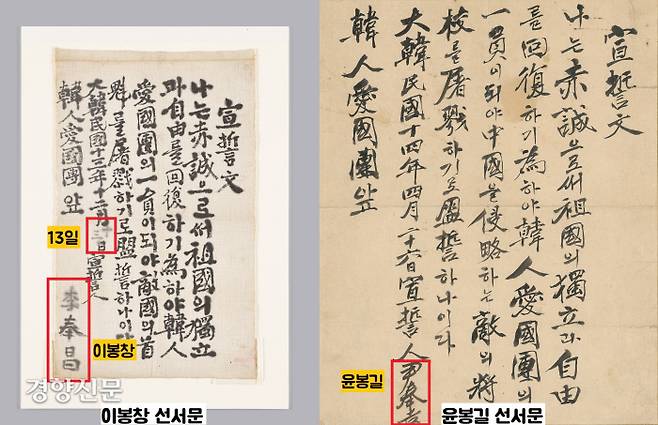 宣誓文
나는赤誠으로써祖國의獨立
과自由를回復하기爲하야韓人
愛國團의一員이되야敵國의首
魁를屠戮하기로盟誓하나이다
大韓民國十三年十二月十三日宣誓人
李奉昌
韓人愛國團앞
13일
이봉창
경향신문
이봉창 선서문
宣誓文
나는赤誠으로써祖國의獨立과自由
를回復하기爲하야韓人愛國團의
一員이되야中國을侵略하는敵의將
校를屠戮하기로盟誓하나이다
大韓民國十四年四月二十六日宣誓人尹奉吉
韓人愛國團앞
윤봉길
윤봉길 선서문